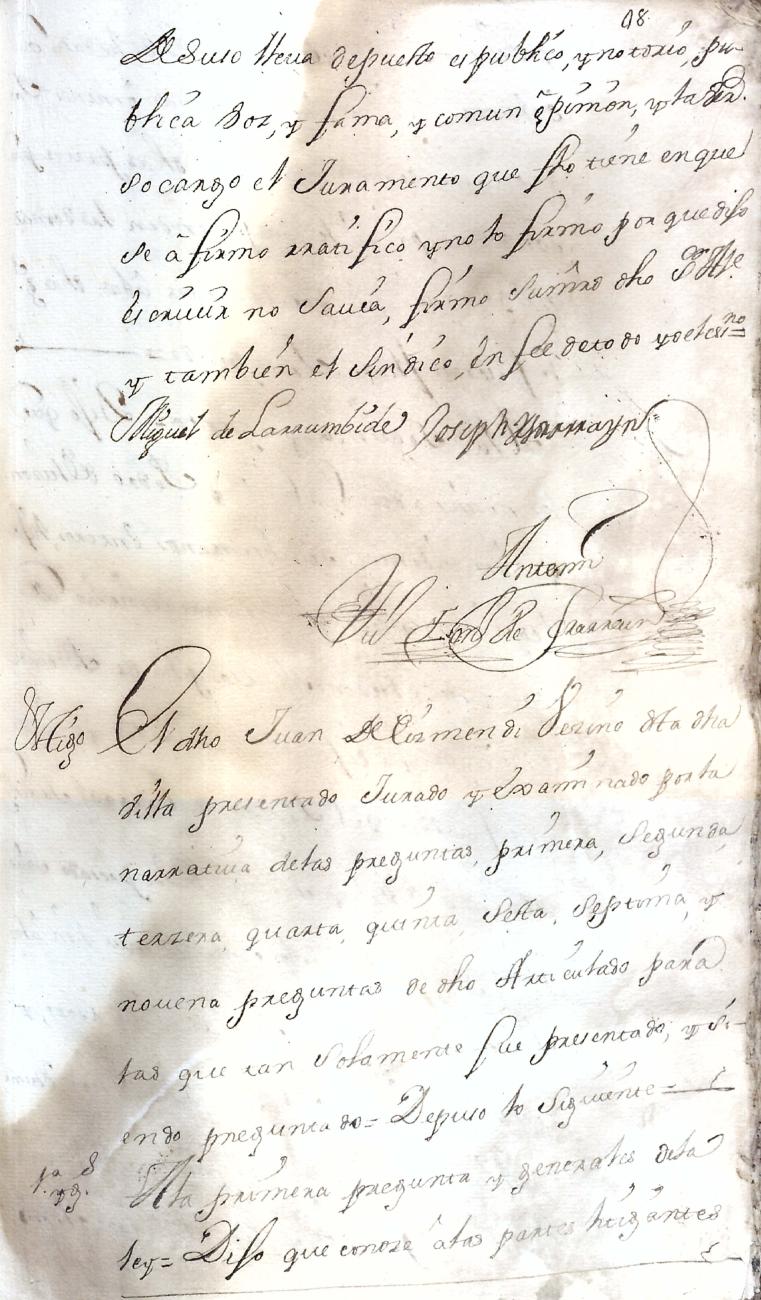 18
De suso lleva depuesto es publico, y notorio, pu-
blica voz, y fama, y comun opimon, y la
so cargo el Juramento que fho tiene en que
se afirmo rratifico y no lo firmo por que dijo
escrivir no savia, firmo sumrd dho
y tambien el sindico, en fee de todo yo el essno=
Miguel de Larrumbide Joseph Yarrayn
Antemi
de Irarrain
Ttigo El dho Juan De Vezino dsta dha
villa presentado Jurado y Examinado por la
narrativa delas preguntas, primera, segunda,
terzera, quarta, quinta, sesta, septima, y
novena preguntas de dho Articulado para
las que tan solamente fue presentado, y si-
endo preguntado = Depuso lo siguiente =
1.a y g.s A la primera pregunta y generales dela
ley = Dijo que conoze â las partes litigantes